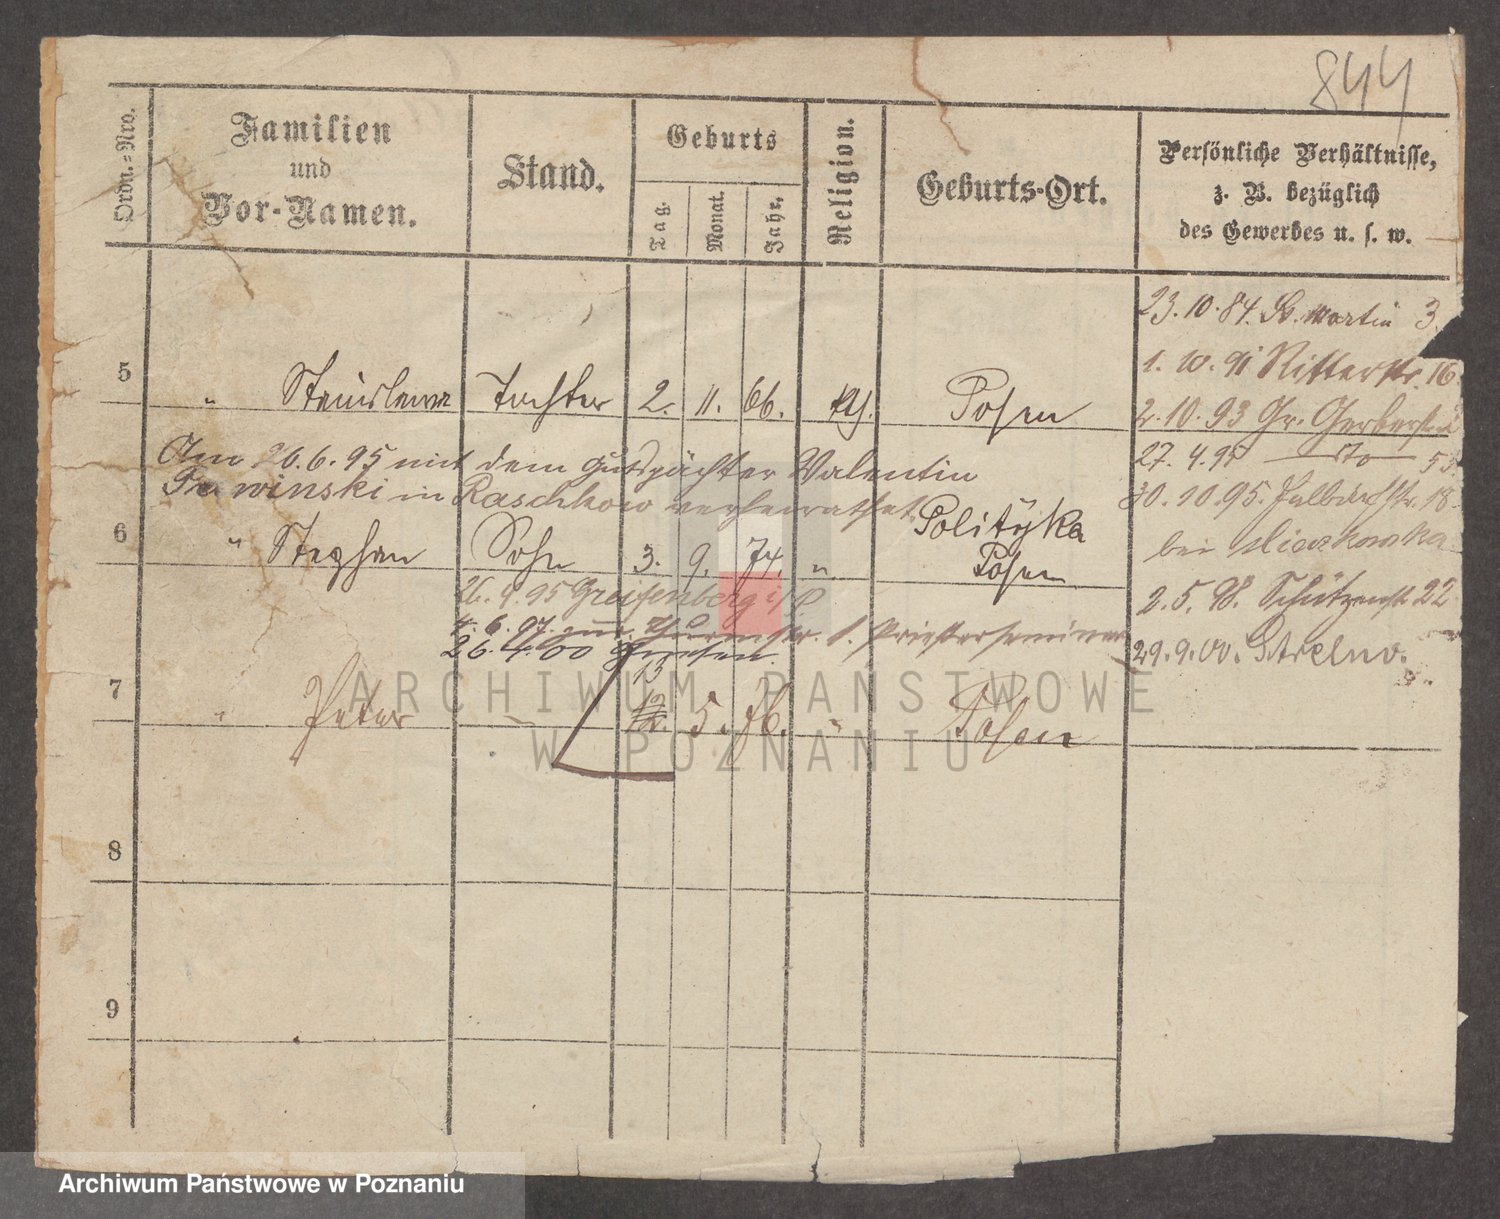 844
Ordn.=Nro.
Familien
und
Vor-Namen.
Stand.
Geburts
Tag.
Monat.
Jahr.
Religion.
Geburts-Ort.
Persönliche Verhältnisse,
z. B. bezüglich
des Gewerbes u. s. w.
23.10.84. St. Martin 3.
1. 10. 91 Ritterstr. 16.
5 " Stanislawa Tochter 2. 11. 66. kth. Posen
2. 10. 93 Gr. Gerberstr.
27. 4. 95 dto 53
Am 26.6.95 mit dem Gutspächter Valentin
winski in Raschkow verheirathet
30. 10. 95. Halbdorfstr. 18.
bei
6 " Stephan Sohn 3. 9. 74. " Polityka
Posen
26. 9. 95 Greifenberg i/P
2. 5. 98. Schützenstr. 22
4. 6. 97. str. 1. Priesterseminar
26. 4. 00 Gnesen.
29. 9. 00. Strelno.
13
7 " Peter " 12. 5. 76. " Posen
8
9
ARCHIWUM PAŃSTWOWE
W POZNANIU
Archiwum Państwowe w Poznaniu